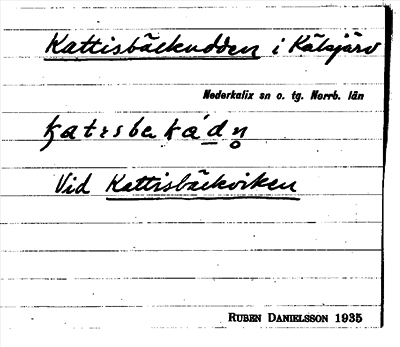 Kattisbäckudden i Kälsjärv
Nederkalix sn o. tg. Norrb. län
Vid Kattisbäckviken
RUBEN DANIELSSON 1935